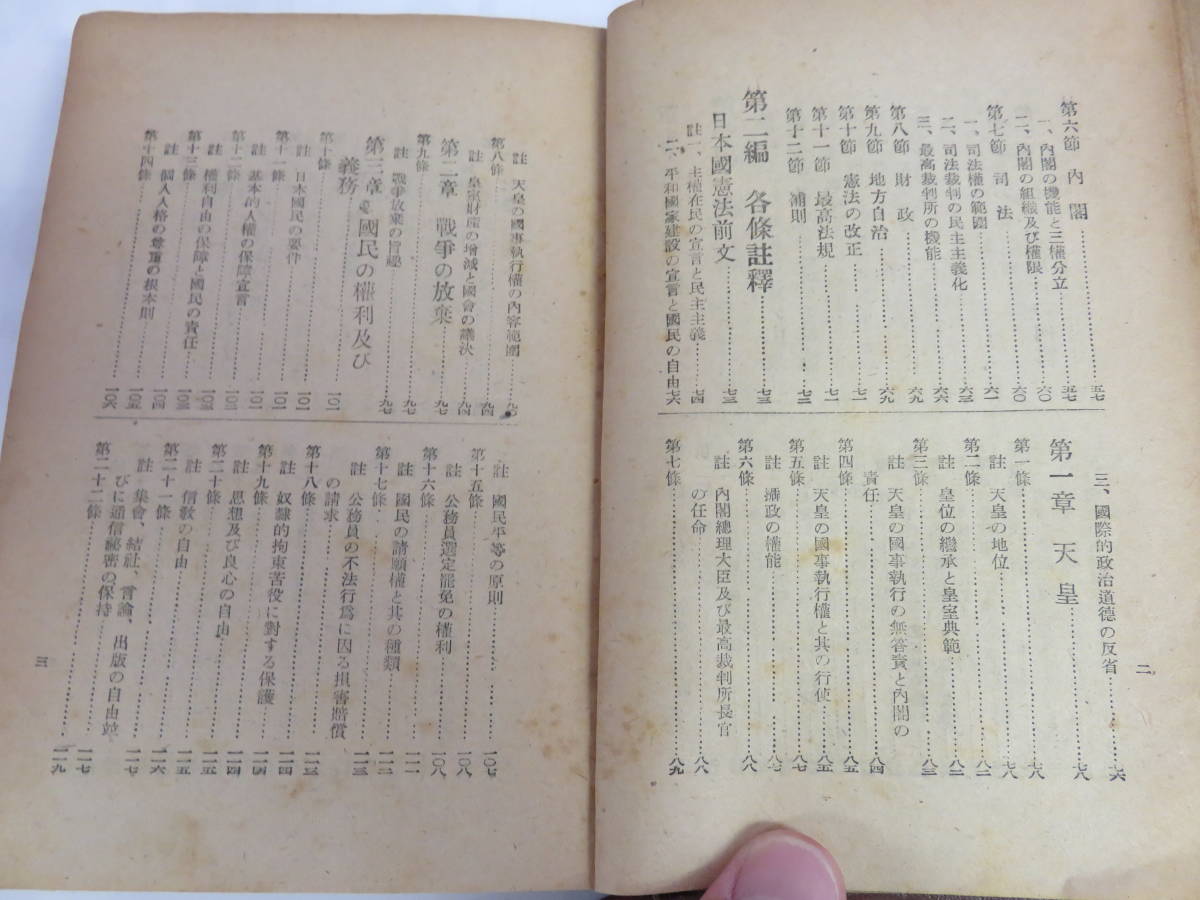 第六節 內閣……五七
一、內閣の機能と三權分立……五七
二、內閣の組織及び權限……六〇
第七節 司法……六一
一、司法權の範圍……六三
二、司法裁判の民主主義化……六六
三、最高裁判所の機能……六九
第八節 財政……六九
第九節 地方自治……七一
第十節 憲法の改正……七一
第十一節 最高法規……七二
第十二節 補則……七三
第二編 各條註釋……七三
日本國憲法前文……七三
註一、主權在民の宣言と民主主義……七四
二、平和國家建設の宣言と國民の自由七六
三、國際的政治道德の反省……七六
第一章 天皇……七八
第一條……七八
註 天皇の地位……七八
第二條……八二
註 皇位の繼承と皇室典範……八二
第三條……八三
註 天皇の國事執行の無答責と內閣の
責任……八四
第四條……八五
註 天皇の國事執行權と其の行使……八五
第五條……八七
註 攝政の權能……八七
第六條……八八
註 內閣總理大臣及び最高裁判所長官
の任命……八八
第七條……八九
二
註 天皇の國事執行權の內容範圍……九〇
第八條……九四
註 皇室財產の增減と國會の議決……九四
第二章 戰爭の放棄……九七
第九條……九七
註 戰爭放棄の旨趣……九七
第三章 國民の權利及び
義務……一〇一
第十條……一〇一
註 日本國民の要件……一〇一
第十一條……一〇一
註 基本的人權の保障宣言……一〇一
第十二條……一〇三
註 權利自由の保障と國民の責任……一〇三
第十三條……一〇四
註 個人人格の尊重の根本則……一〇五
第十四條……一〇六
註 國民平等の原則……一〇七
第十五條……一〇八
註 公務員選定罷免の權利……一〇八
第十六條……一一一
註 國民の請願權と其の種類……一一二
第十七條……一一三
註 公務員の不法行爲に因る損害賠償
の請求……一一三
第十八條……一一四
註 奴隸的拘束苦役に對する保護……一一四
第十九條……一一四
註 思想及び良心の自由……一一五
第二十條……一一五
註 信敎の自由……一一六
第二十一條……一一七
註 集會、結社、言論、出版の自由竝
びに通信祕密の保持……一一七
第二十二條……一一九
三